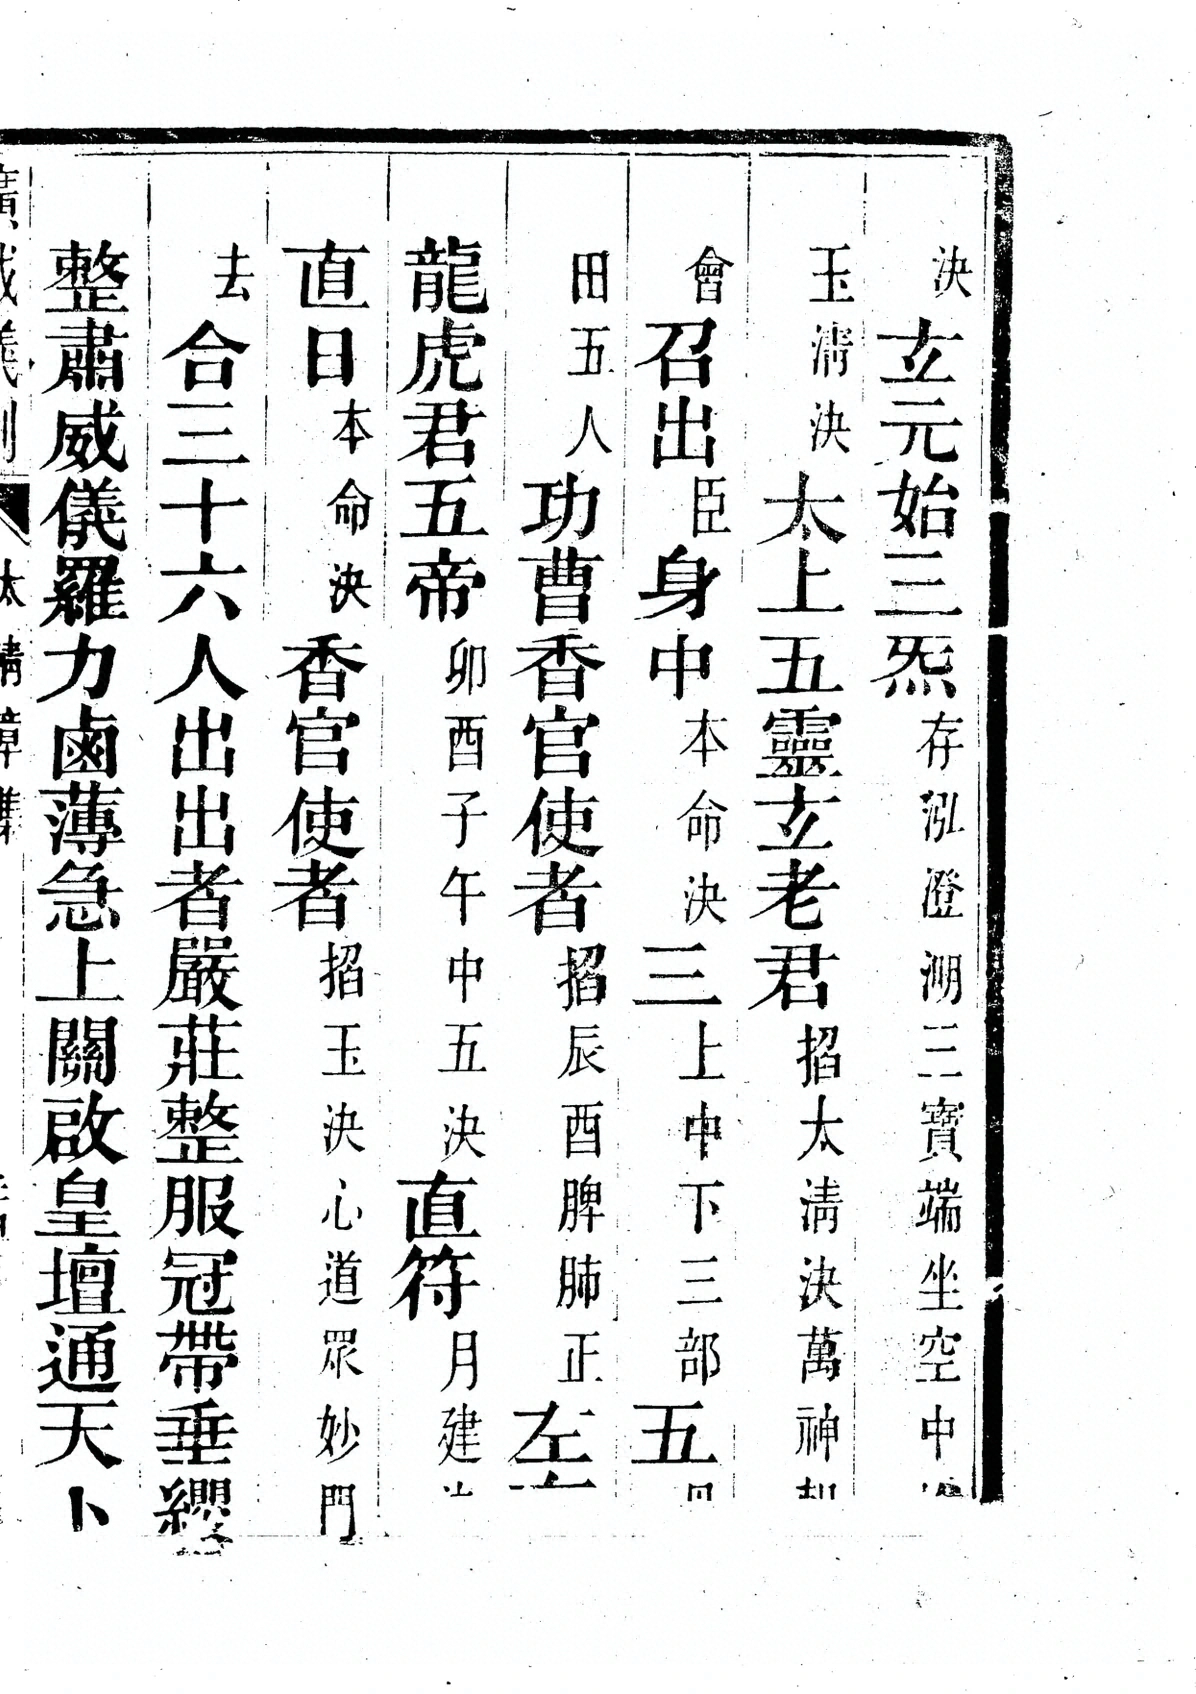 決玄元始三炁存泓澄湖三寶端坐空中
玉淸決太上五靈玄老君掐太淸決萬神
會召出臣身中本命決三上中下三部五
田五人功曹香官使者掐辰酉脾肺正左
龍虎君五帝卯酉子午中五決直符月建
直日本命決香官使者掐玉決心道眾妙門
去合三十六人出出者嚴莊整服冠帶垂纓
整肅威儀羅力鹵薄急上關啟皇壇通天
廣成儀制 太淸章